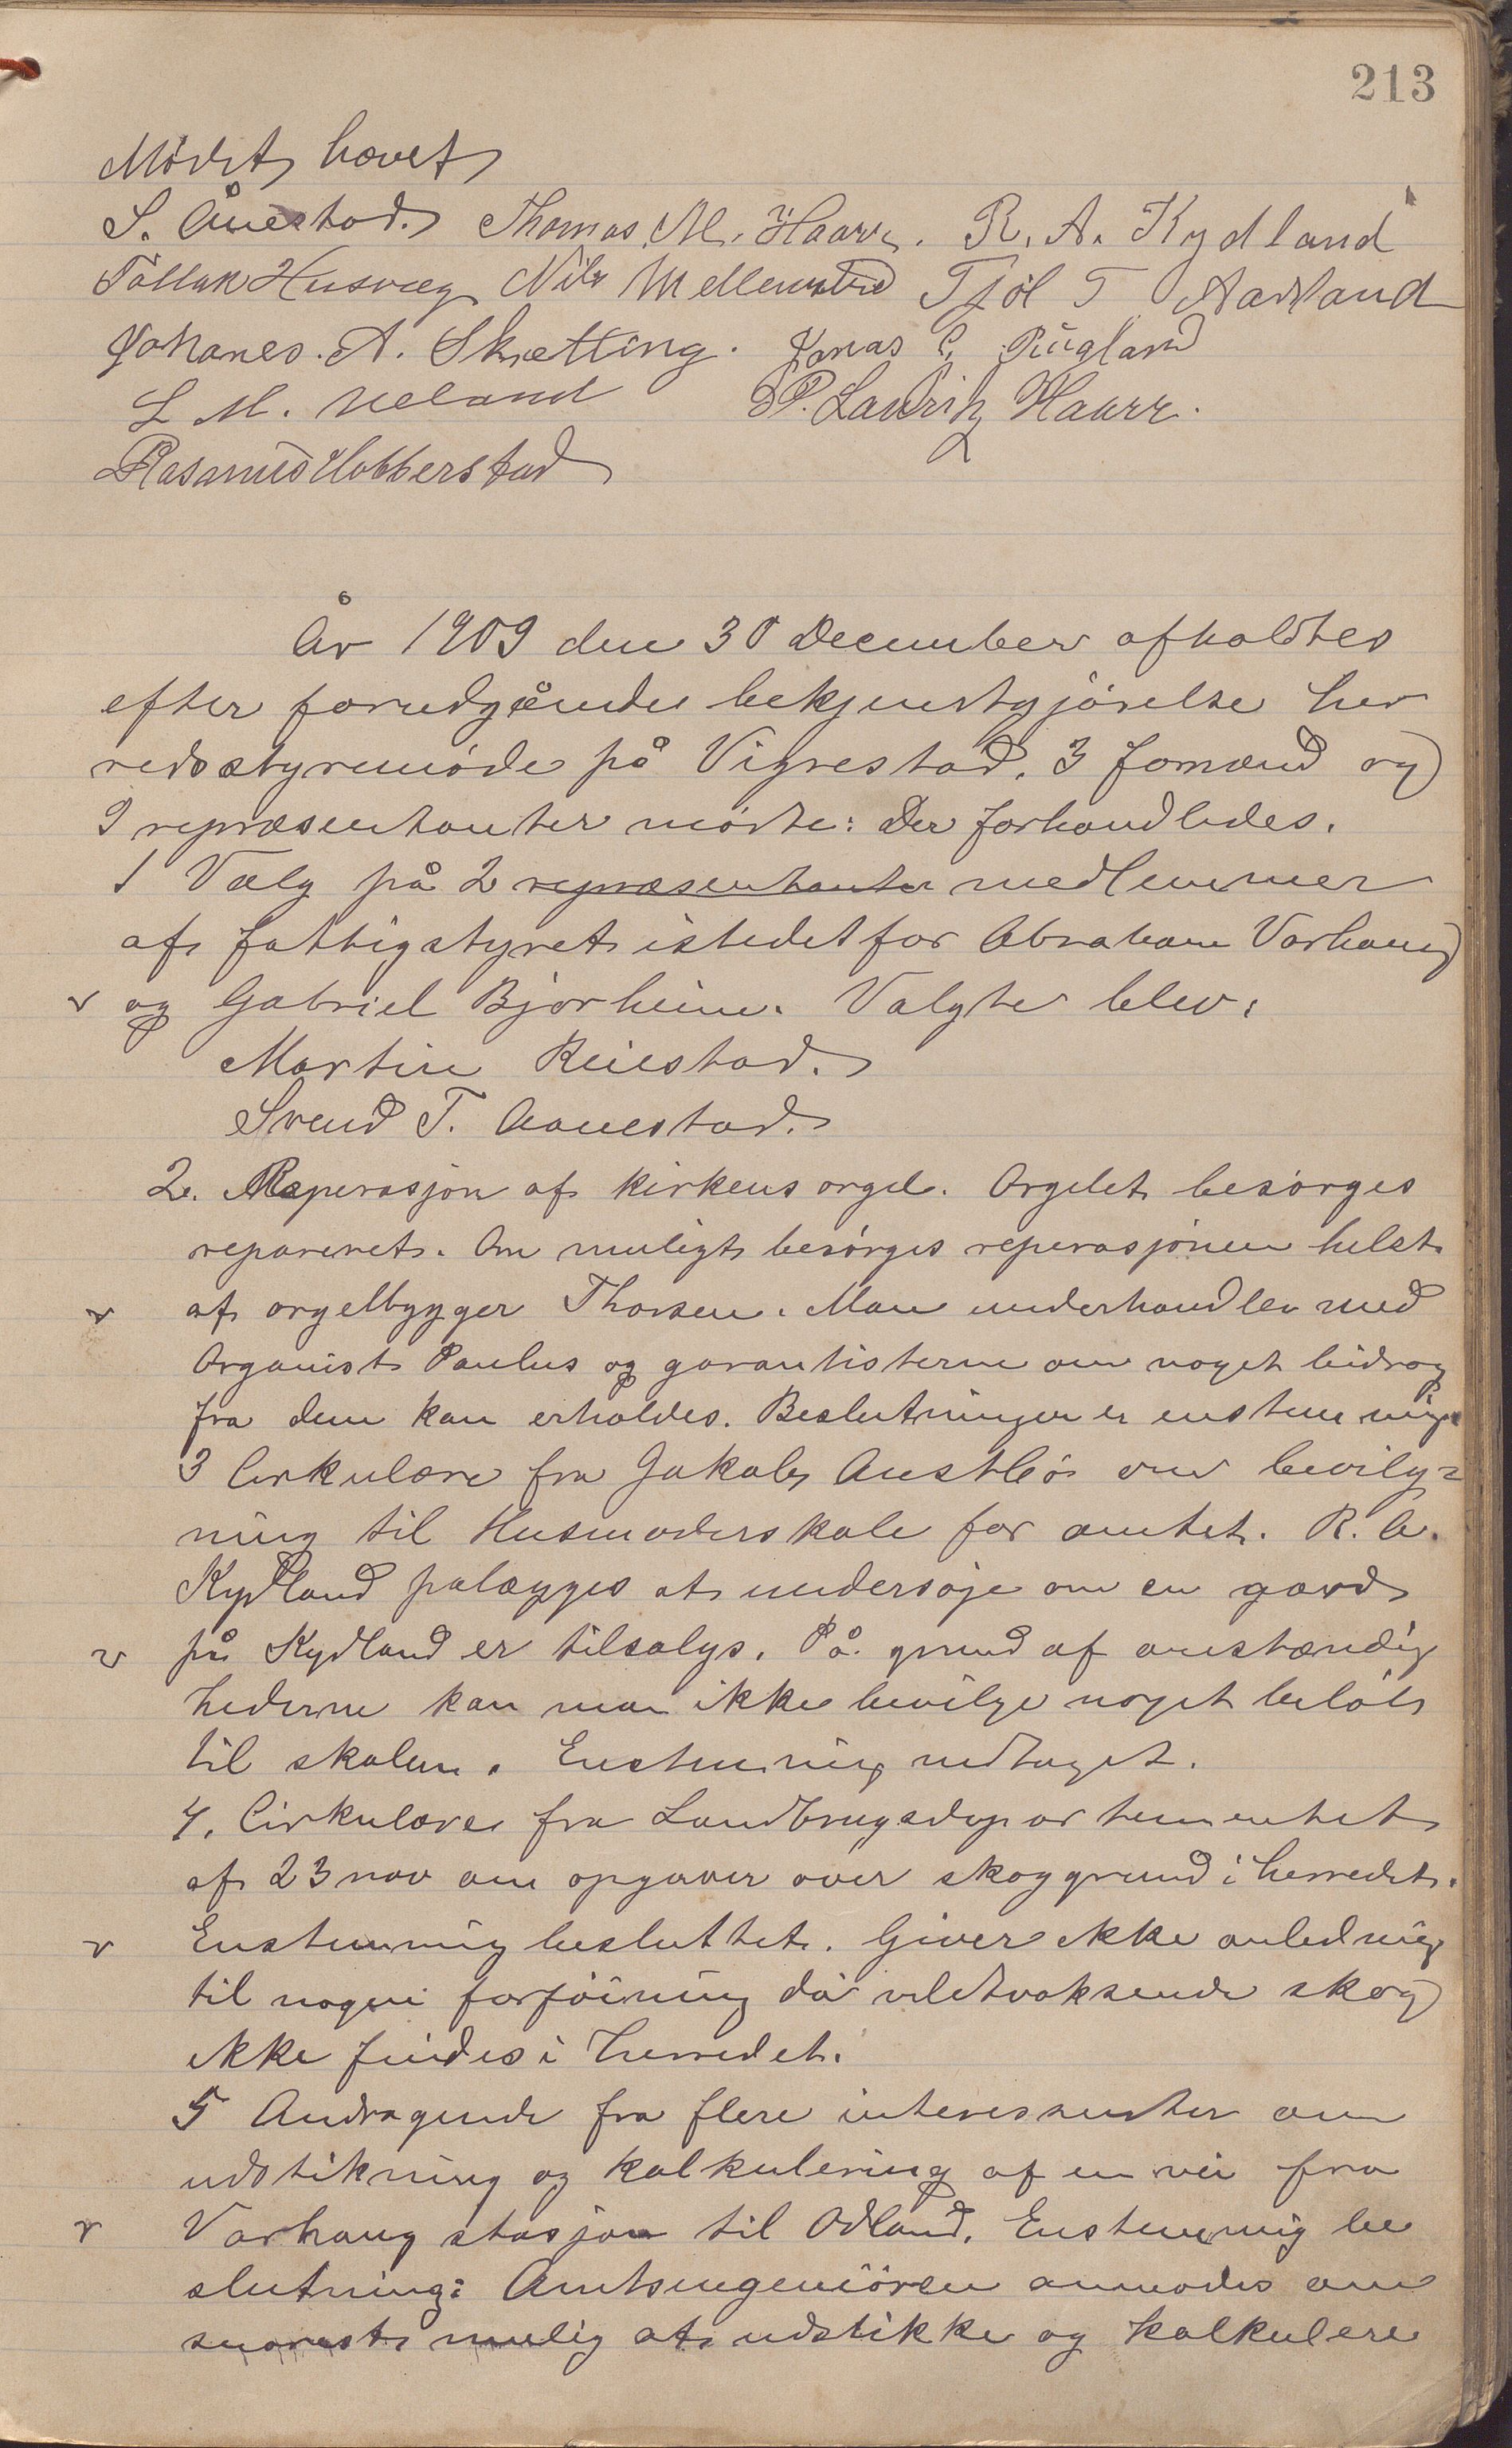 213
Mødet hævet
S. Ånestad. Thomas M. Haarr. R. A. Kydland
Tollak Husvæg Nils Mellemstrand Tjøl T Aadland
Johanes. A. Skrætting. Jonas C. Rügland
L M. Ueland P. Lauritz Haarr.
Rasmus Hobberstad
År 1909 den 30 December afholdtes
efter forudgående bekjendtgjörelse her
redsstyremöde på Vigrestad. 3 formænd og
9 repræsentanter mödte: Der forhandledes.
1 Valg på 2 repræsentanter medlemmer
af fattigstyret istedet for Abraham Varhaug
v og Gabriel Bjorheim. Valgte blev:
Martin Reiestad.
Svend T. Aanestad.
2. Reperasjon af kirkens orgel. Orgelet besörges
repareret. Om muligt besörges reperasjonen helst
v af orgelbygger Thorsen. Man underhandler med
Organist Paulus og garantisterne om noget bidrag
fra dem kan erholdes. Beslutningen er enstemmig
3 Cirkulære fra Jakob Austbö om bevilg=
ning til Husmoderskole for amtet. R. A.
Kydland palægges at undersöge om en gard
v på Kydland er tilsalgs. På grund af omstændig
hederne kan man ikke bevilge noget belöb
til skolen. Enstemmig vedtaget.
4. Cirkulære fra Landbrugsdepartementet
af 23 nov om opgaver over skoggrund i herredet.
v Enstemmig besluttet. Giver ikke anledning
til nogen forföining då vildtvoksende skog
ikke findes i herredet.
5 Andragende fra flere interessenter om
udstikning og kalkulering af en vei fra
v Varhaug stasjon til Odland. Enstemmig be
slutning: Amtsingeniören anmodes om
snarest mulig at udstikke og kalkulere